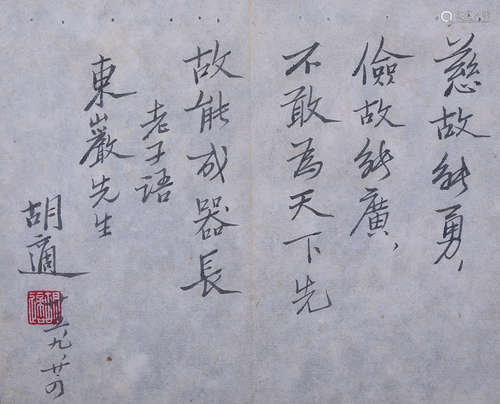 慈故能勇，
儉故能廣，
不敢為天下先
故能成器長
老子語
東巖先生
胡適
卅五、九、廿四
胡適